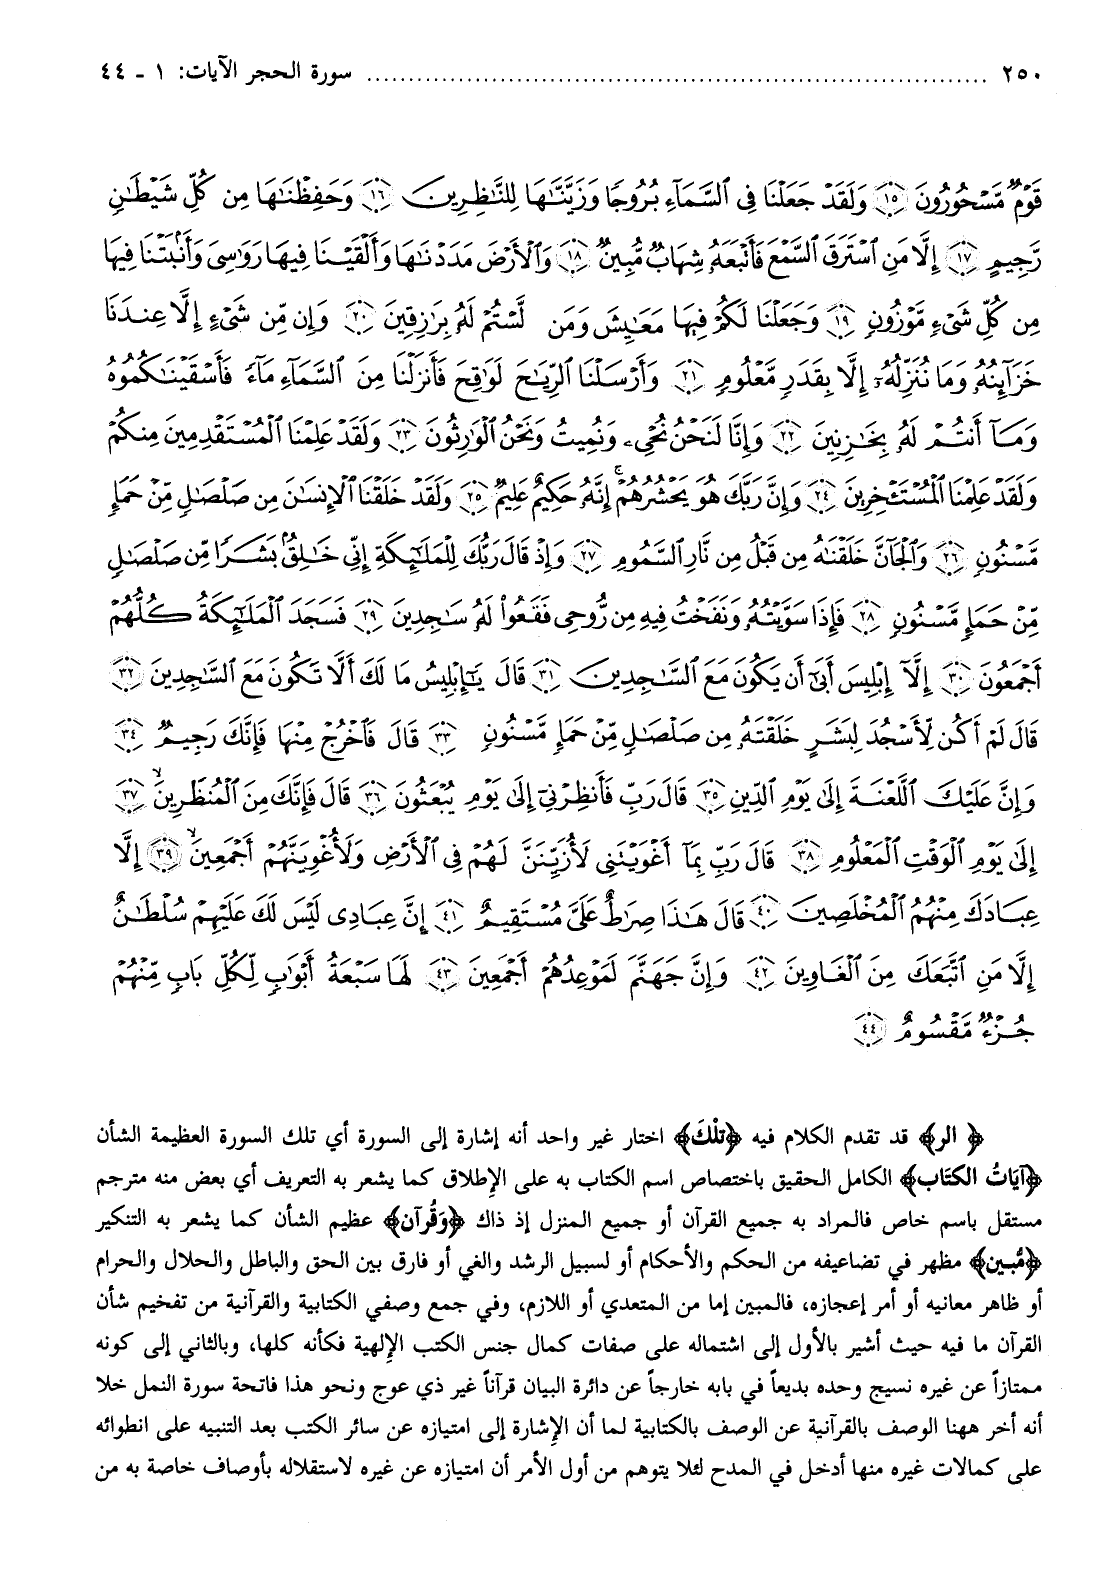 ٢٥٠ ........................................................................... سورة الحجر الآيات: ١ - ٤٤
قَوْمٌ مَّسْحُورُونَ ﴿١٥﴾ وَلَقَدْ جَعَلْنَا فِى السَّمَآءِ بُرُوجًا وَزَيَّنَّٰهَا لِلنَّٰظِرِينَ ﴿١٦﴾ وَحَفِظْنَٰهَا مِن كُلِّ شَيْطَٰنٍ
رَّجِيمٍ ﴿١٧﴾ إِلَّا مَنِ ٱسْتَرَقَ ٱلسَّمْعَ فَأَتْبَعَهُۥ شِهَابٌ مُّبِينٌ ﴿١٨﴾ وَٱلْأَرْضَ مَدَدْنَٰهَا وَأَلْقَيْنَا فِيهَا رَوَٰسِىَ وَأَنۢبَتْنَا فِيهَا
مِن كُلِّ شَىْءٍ مَّوْزُونٍ ﴿١٩﴾ وَجَعَلْنَا لَكُمْ فِيهَا مَعَٰيِشَ وَمَن لَّسْتُمْ لَهُۥ بِرَٰزِقِينَ ﴿٢٠﴾ وَإِن مِّن شَىْءٍ إِلَّا عِندَنَا
خَزَآئِنُهُۥ وَمَا نُنَزِّلُهُۥٓ إِلَّا بِقَدَرٍ مَّعْلُومٍ ﴿٢١﴾ وَأَرْسَلْنَا ٱلرِّيَٰحَ لَوَٰقِحَ فَأَنزَلْنَا مِنَ ٱلسَّمَآءِ مَآءً فَأَسْقَيْنَٰكُمُوهُ
وَمَآ أَنتُمْ لَهُۥ بِخَٰزِنِينَ ﴿٢٢﴾ وَإِنَّا لَنَحْنُ نُحْىِۦ وَنُمِيتُ وَنَحْنُ ٱلْوَٰرِثُونَ ﴿٢٣﴾ وَلَقَدْ عَلِمْنَا ٱلْمُسْتَقْدِمِينَ مِنكُمْ
وَلَقَدْ عَلِمْنَا ٱلْمُسْتَـْٔخِرِينَ ﴿٢٤﴾ وَإِنَّ رَبَّكَ هُوَ يَحْشُرُهُمْ ۚ إِنَّهُۥ حَكِيمٌ عَلِيمٌ ﴿٢٥﴾ وَلَقَدْ خَلَقْنَا ٱلْإِنسَٰنَ مِن صَلْصَٰلٍ مِّنْ حَمَإٍ
مَّسْنُونٍ ﴿٢٦﴾ وَٱلْجَآنَّ خَلَقْنَٰهُ مِن قَبْلُ مِن نَّارِ ٱلسَّمُومِ ﴿٢٧﴾ وَإِذْ قَالَ رَبُّكَ لِلْمَلَٰٓئِكَةِ إِنِّى خَٰلِقٌۢ بَشَرًا مِّن صَلْصَٰلٍ
مِّنْ حَمَإٍ مَّسْنُونٍ ﴿٢٨﴾ فَإِذَا سَوَّيْتُهُۥ وَنَفَخْتُ فِيهِ مِن رُّوحِى فَقَعُوا۟ لَهُۥ سَٰجِدِينَ ﴿٢٩﴾ فَسَجَدَ ٱلْمَلَٰٓئِكَةُ كُلُّهُمْ
أَجْمَعُونَ ﴿٣٠﴾ إِلَّآ إِبْلِيسَ أَبَىٰٓ أَن يَكُونَ مَعَ ٱلسَّٰجِدِينَ ﴿٣١﴾ قَالَ يَٰٓإِبْلِيسُ مَا لَكَ أَلَّا تَكُونَ مَعَ ٱلسَّٰجِدِينَ ﴿٣٢﴾
قَالَ لَمْ أَكُن لِّأَسْجُدَ لِبَشَرٍ خَلَقْتَهُۥ مِن صَلْصَٰلٍ مِّنْ حَمَإٍ مَّسْنُونٍ ﴿٣٣﴾ قَالَ فَٱخْرُجْ مِنْهَا فَإِنَّكَ رَجِيمٌ ﴿٣٤﴾
وَإِنَّ عَلَيْكَ ٱللَّعْنَةَ إِلَىٰ يَوْمِ ٱلدِّينِ ﴿٣٥﴾ قَالَ رَبِّ فَأَنظِرْنِىٓ إِلَىٰ يَوْمِ يُبْعَثُونَ ﴿٣٦﴾ قَالَ فَإِنَّكَ مِنَ ٱلْمُنظَرِينَ ﴿٣٧﴾
إِلَىٰ يَوْمِ ٱلْوَقْتِ ٱلْمَعْلُومِ ﴿٣٨﴾ قَالَ رَبِّ بِمَآ أَغْوَيْتَنِى لَأُزَيِّنَنَّ لَهُمْ فِى ٱلْأَرْضِ وَلَأُغْوِيَنَّهُمْ أَجْمَعِينَ ﴿٣٩﴾ إِلَّا
عِبَادَكَ مِنْهُمُ ٱلْمُخْلَصِينَ ﴿٤٠﴾ قَالَ هَٰذَا صِرَٰطٌ عَلَىَّ مُسْتَقِيمٌ ﴿٤١﴾ إِنَّ عِبَادِى لَيْسَ لَكَ عَلَيْهِمْ سُلْطَٰنٌ
إِلَّا مَنِ ٱتَّبَعَكَ مِنَ ٱلْغَاوِينَ ﴿٤٢﴾ وَإِنَّ جَهَنَّمَ لَمَوْعِدُهُمْ أَجْمَعِينَ ﴿٤٣﴾ لَهَا سَبْعَةُ أَبْوَٰبٍ لِّكُلِّ بَابٍ مِّنْهُمْ
جُزْءٌ مَّقْسُومٌ ﴿٤٤﴾
﴿الر﴾ قد تقدم الكلام فيه ﴿تلْكَ﴾ اختار غير واحد أنه إشارة إلى السورة أي تلك السورة العظيمة الشأن
﴿آيَاتُ الكتَاب﴾ الكامل الحقيق باختصاص اسم الكتاب به على الإطلاق كما يشعر به التعريف أي بعض منه مترجم
مستقل باسم خاص فالمراد به جميع القرآن أو جميع المنزل إذ ذاك ﴿وَقُرآن﴾ عظيم الشأن كما يشعر به التنكير
﴿مُّبين﴾ مظهر في تضاعيفه من الحكم والأحكام أو لسبيل الرشد والغي أو فارق بين الحق والباطل والحلال والحرام
أو ظاهر معانيه أو أمر إعجازه، فالمبين إما من المتعدي أو اللازم، وفي جمع وصفي الكتابية والقرآنية من تفخيم شأن
القرآن ما فيه حيث أشير بالأول إلى اشتماله على صفات كمال جنس الكتب الإلهية فكأنه كلها، وبالثاني إلى كونه
ممتازاً عن غيره نسيج وحده بديعاً في بابه خارجاً عن دائرة البيان قرآناً غير ذي عوج ونحو هذا فاتحة سورة النمل خلا
أنه أخر ههنا الوصف بالقرآنية عن الوصف بالكتابية لما أن الإشارة إلى امتيازه عن سائر الكتب بعد التنبيه على انطوائه
على كمالات غيره منها أدخل في المدح لئلا يتوهم من أول الأمر أن امتيازه عن غيره لاستقلاله بأوصاف خاصة به من